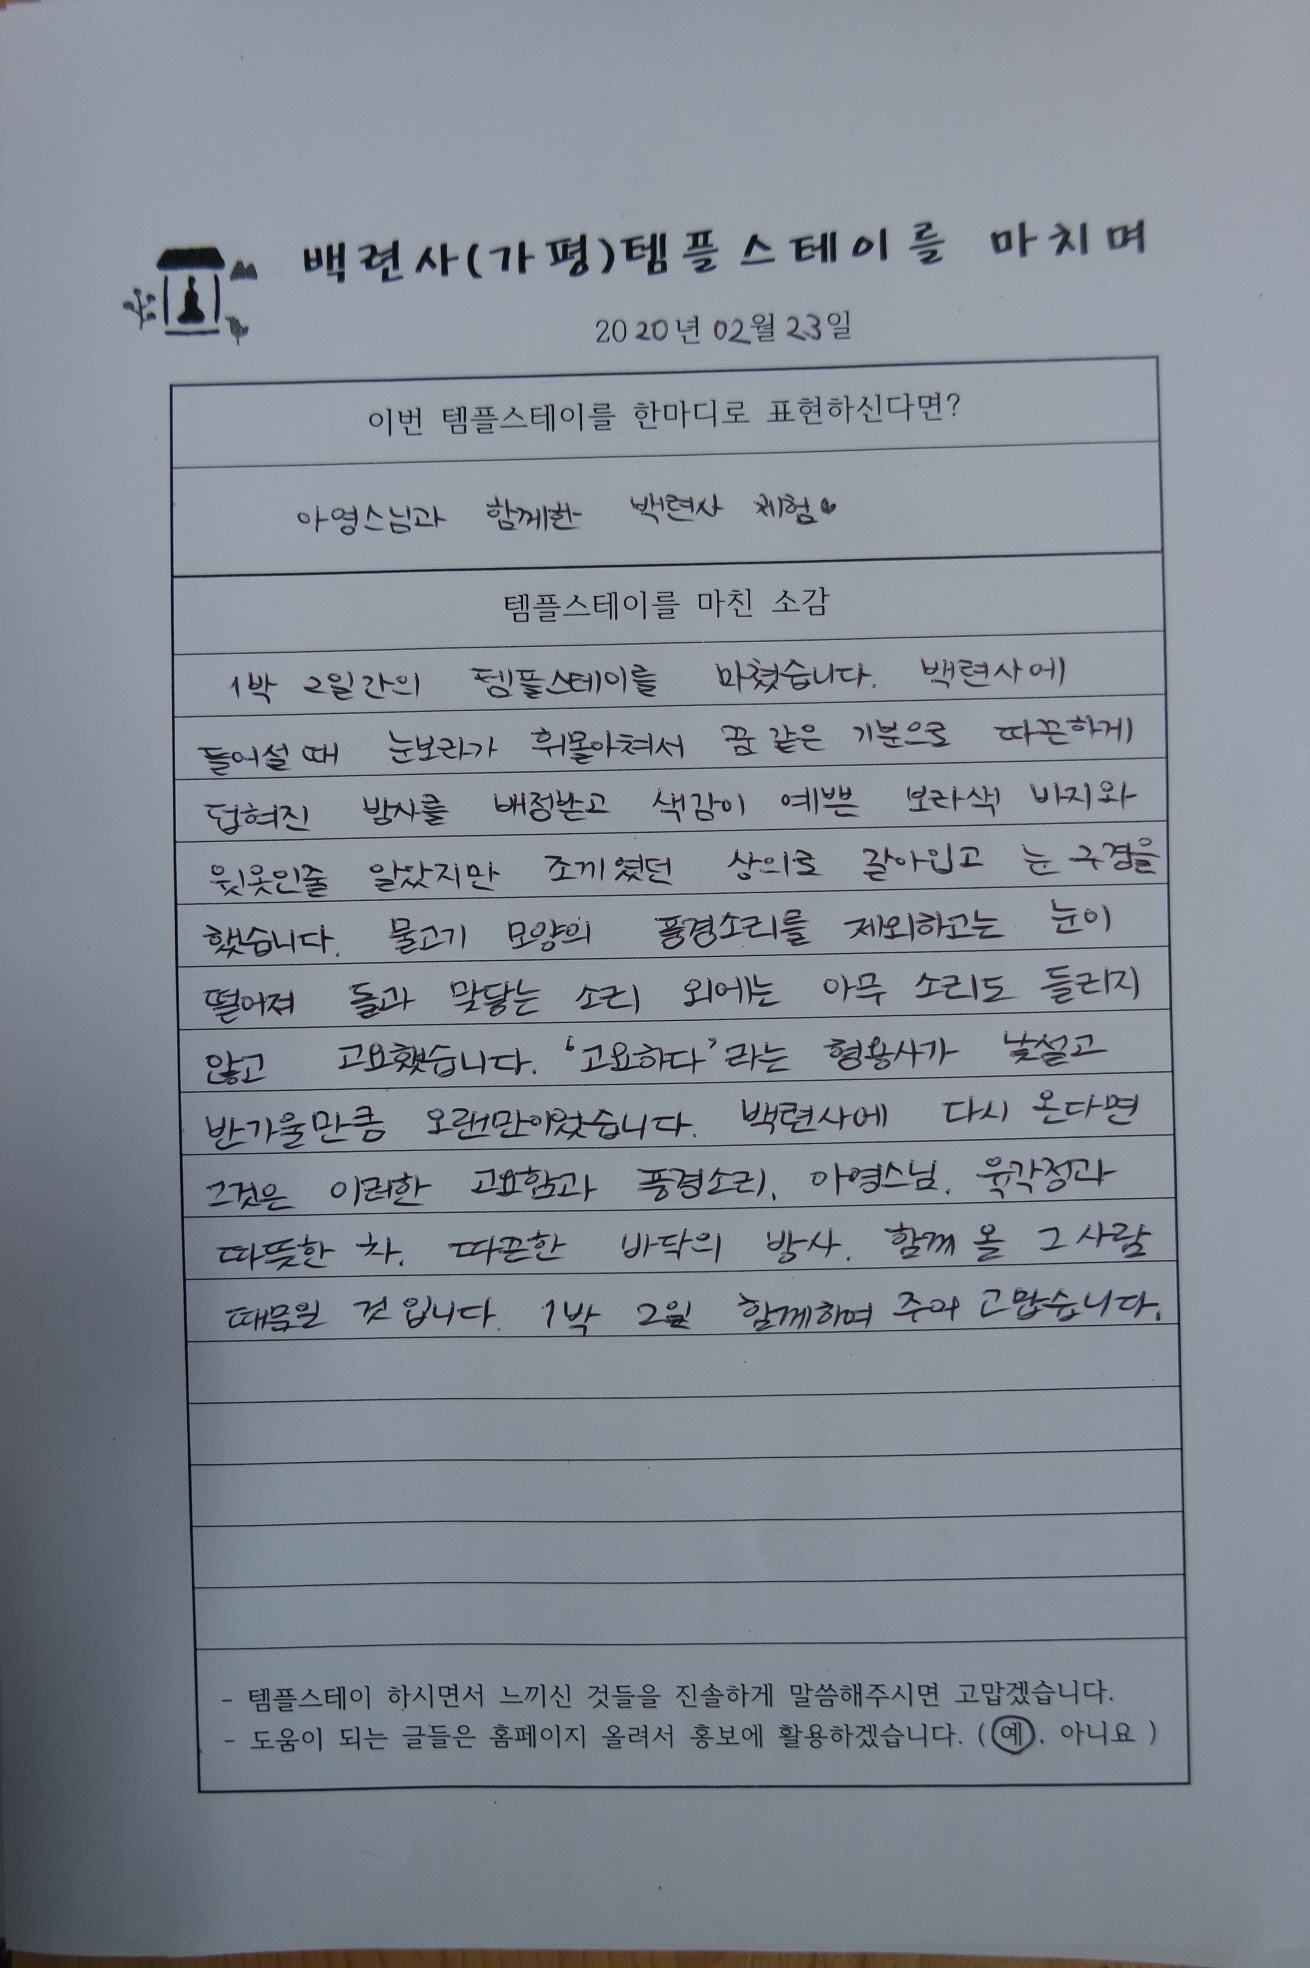 백련사(가평)템플스테이를 마치며
2020년 02월 23일
이번 템플스테이를 한마디로 표현하신다면?
아영스님과 함께한 백련사 체험
템플스테이를 마친 소감
1박 2일간의 템플스테이를 마쳤습니다. 백련사에
들어설 때 눈보라가 휘몰아쳐서 꿈 같은 기분으로 따끈하게
덥혀진 방사를 배정받고 색감이 예쁜 보라색 바지와
윗옷인줄 알았지만 조끼였던 상의로 갈아입고 눈 구경을
했습니다. 물고기 모양의 풍경소리를 제외하고는 눈이
떨어져 돌과 맞닿는 소리 외에는 아무 소리도 들리지
않고 고요했습니다. '고요하다'라는 형용사가 낯설고
반가울만큼 오랜만이었습니다. 백련사에 다시 온다면
그것은 이러한 고요함과 풍경소리, 아영스님, 육각정과
따뜻한 차, 따끈한 바닥의 방사, 함께 올 그 사람
때문일 것 입니다. 1박 2일 함께하며 주어 고맙습니다.
- 템플스테이 하시면서 느끼신 것들을 진솔하게 말씀해주시면 고맙겠습니다.
- 도움이 되는 글들은 홈페이지 올려서 홍보에 활용하겠습니다. ( 예, 아니요 )